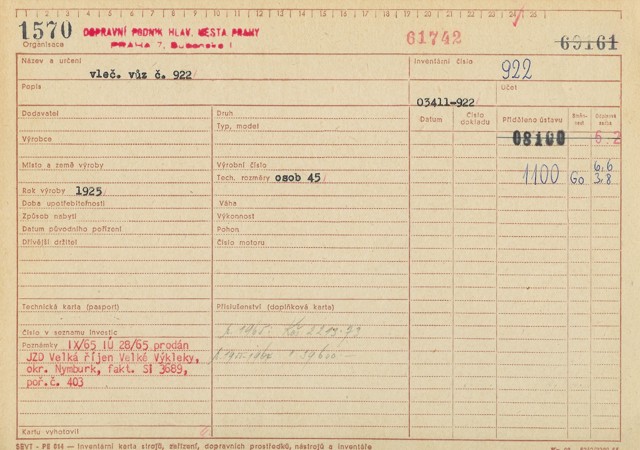 1 2 3 4 5 6 7 8 9 10 11 12 13 14 15 16 17 18 19 20 21 22 23 24 25
1570 DOPRAVNÍ PODNIK HLAV. MĚSTA PRAHY 61742 69161
Organisace PRAHA 7, Bubenská 1
Název a určení Inventární číslo 922
vleč. vůz č. 922
Popis Účet
03411-922
Dodavatel Druh Datum Číslo dokladu Přiděleno ústavu
Typ, model
Výrobce 08100 6.2
Místo a země výroby Výrobní číslo 1100 Go 6,6
Tech. rozměry osob 45 3,8
Rok výroby 1925
Doba upotřebitelnosti Váha
Způsob nabytí Výkonnost
Datum původního pořízení Pohon
Dřívější držitel Číslo motoru
Technická karta (pasport) Příslušenství (doplňková karta)
Číslo v seznamu investic
Poznámky IX/65 IÚ 28/65 prodán
JZD Velká říjen Velké Výkleky,
okr. Nymburk, fakt. SI 3689,
poř.č. 403
Kartu vyhotovil
SEVT - PE 814 — Inventární karta strojů, zařízení, dopravních prostředků, nástrojů a inventáře